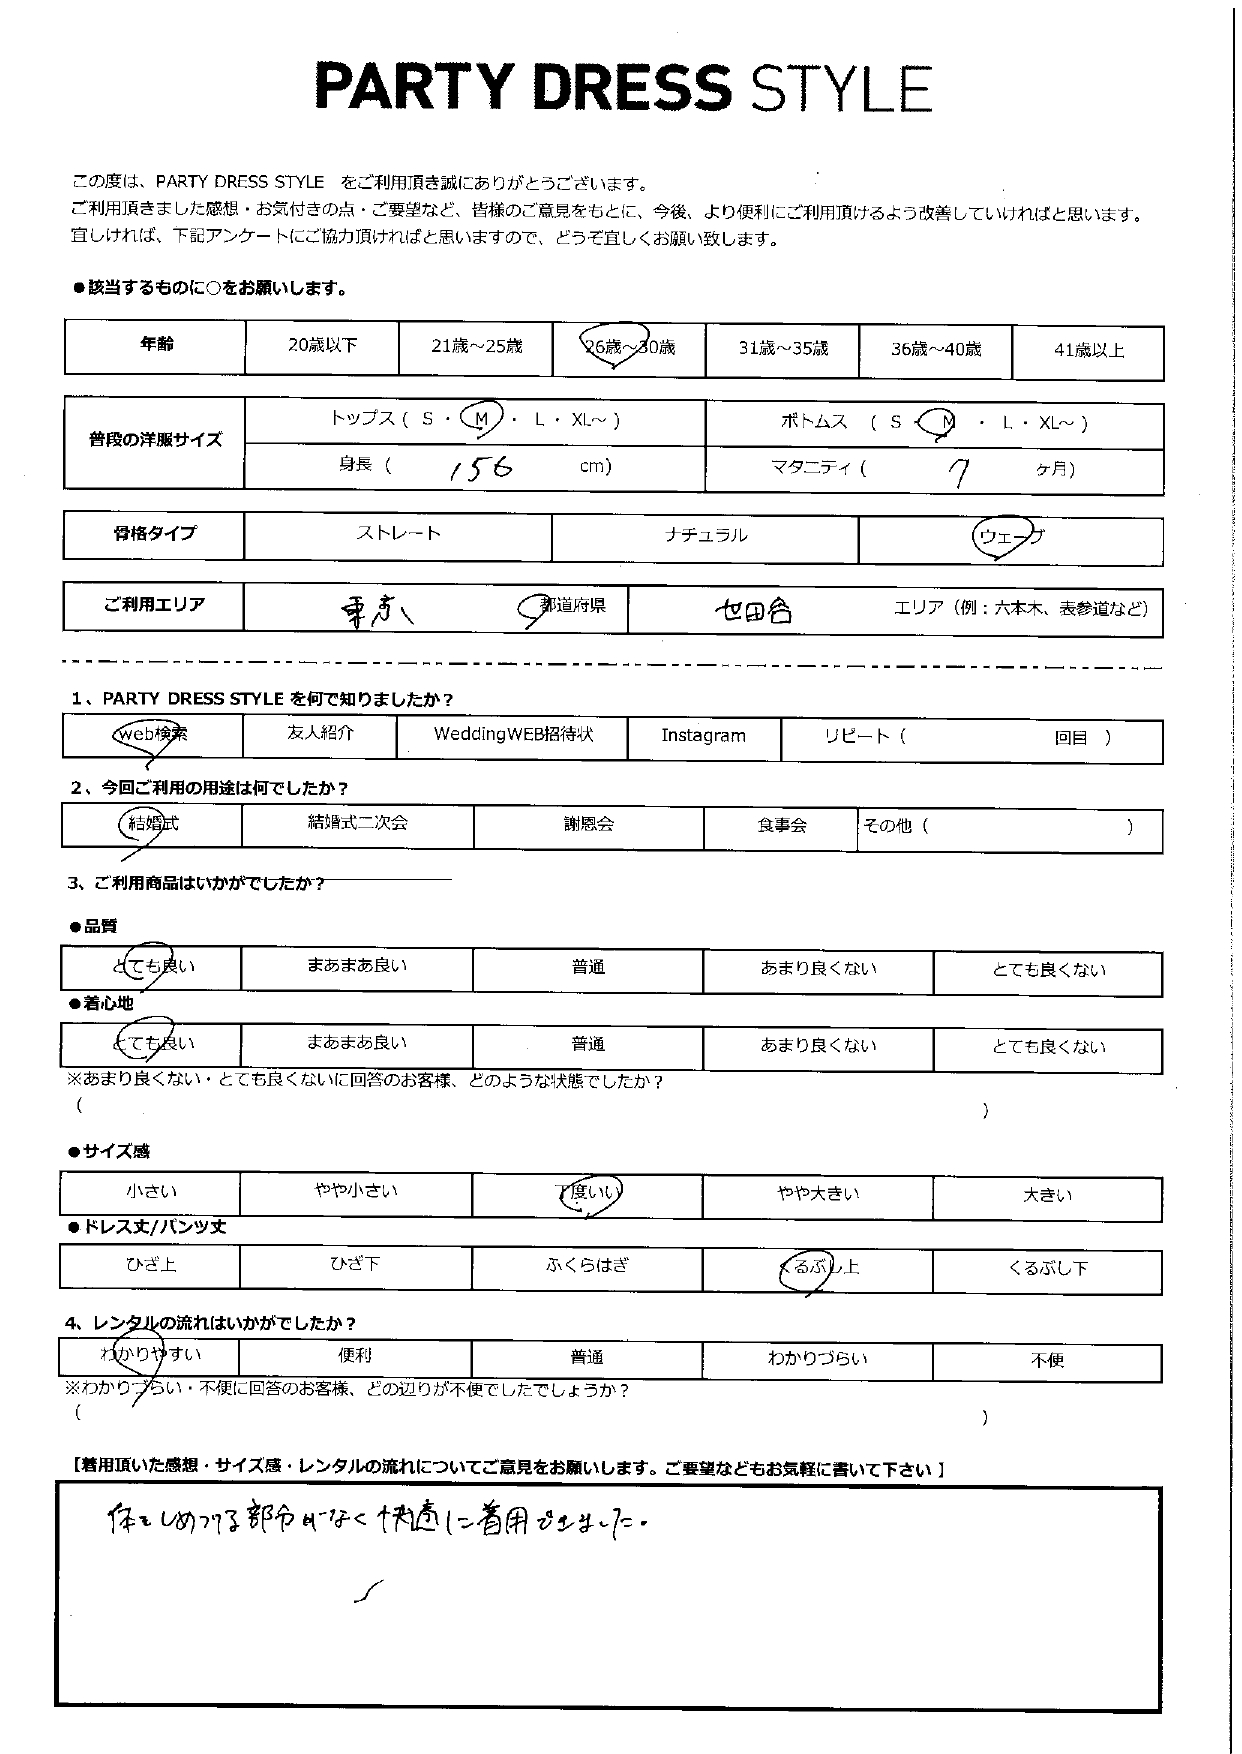 PARTY DRESS STYLE
この度は、PARTY DRESS STYLE をご利用頂き誠にありがとうございます。
ご利用頂きました感想・お気付きの点・ご要望など、皆様のご意見をもとに、今後、より便利にご利用頂けるよう改善していければと思います。
宜しければ、下記アンケートにご協力頂ければと思いますので、どうぞ宜しくお願い致します。
●該当するものに○をお願いします。
年齢 20歳以下 21歳〜25歳 26歳〜30歳 31歳〜35歳 36歳〜40歳 41歳以上
普段の洋服サイズ トップス ( S ・ M ・ L ・ XL〜 ) ボトムス ( S ・ M ・ L ・ XL〜 )
身長 ( 156 cm) マタニティ ( 7 ヶ月)
骨格タイプ ストレート ナチュラル ウェーブ
ご利用エリア 東京 都道府県 世田谷 エリア（例：六本木、表参道など）
1、PARTY DRESS STYLE を何で知りましたか？
web検索 友人紹介 WeddingWEB招待状 Instagram リピート ( 回目 )
2、今回ご利用の用途は何でしたか？
結婚式 結婚式二次会 謝恩会 食事会 その他 ( )
3、ご利用商品はいかがでしたか？
●品質
とても良い まあまあ良い 普通 あまり良くない とても良くない
●着心地
とても良い まあまあ良い 普通 あまり良くない とても良くない
※あまり良くない・とても良くないに回答のお客様、どのような状態でしたか？
( )
●サイズ感
小さい やや小さい 丁度いい やや大きい 大きい
●ドレス丈/パンツ丈
ひざ上 ひざ下 ふくらはぎ くるぶし上 くるぶし下
4、レンタルの流れはいかがでしたか？
わかりやすい 便利 普通 わかりづらい 不便
※わかりづらい・不便に回答のお客様、どの辺りが不便でしたでしょうか？
( )
【着用頂いた感想・サイズ感・レンタルの流れについてご意見をお願いします。ご要望などもお気軽に書いて下さい 】
体をしめつける部分がなく快適に着用できました。